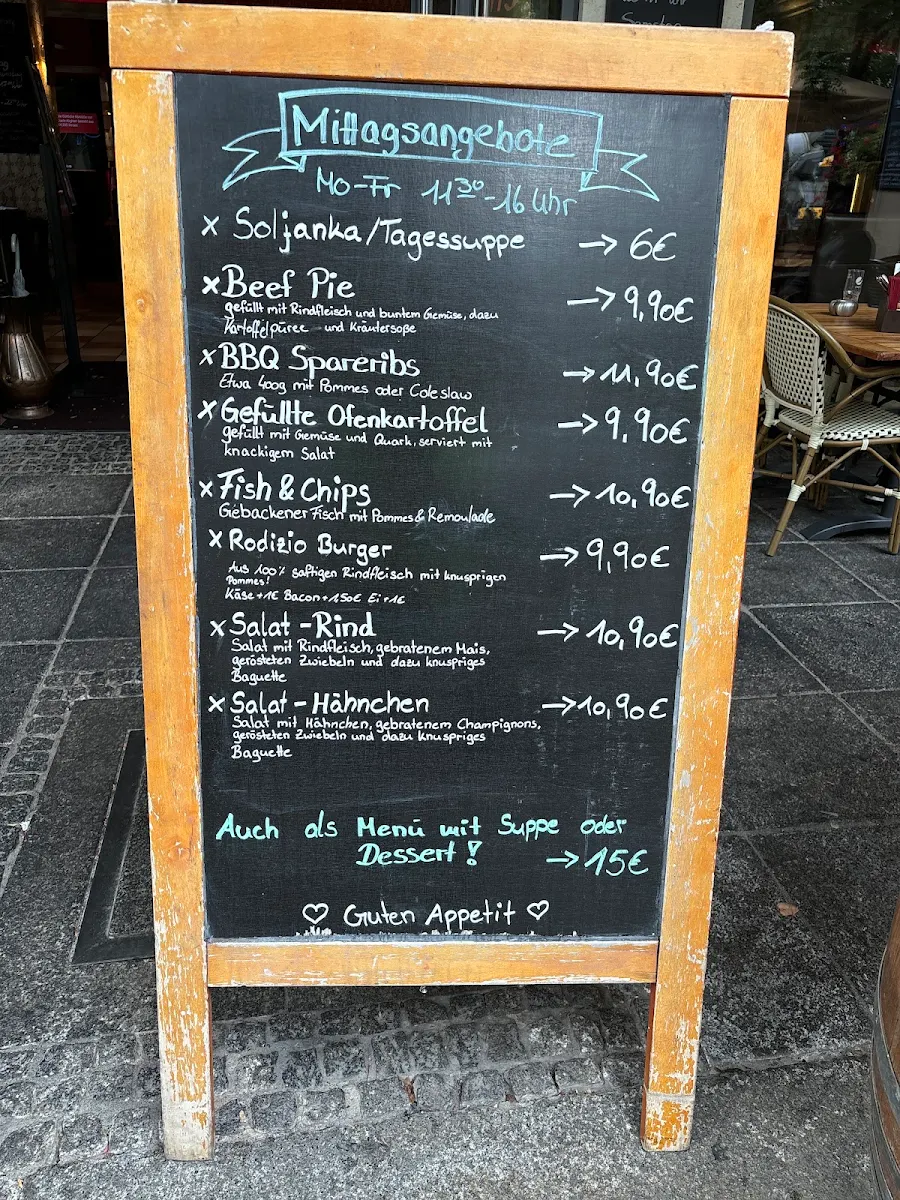 Mittagsangebote
Mo-Fr 11³⁰-16 Uhr
x Soljanka/Tagessuppe → 6€
x Beef Pie → 9,90€
gefüllt mit Rindfleisch und buntem Gemüse, dazu
Kartoffelpüree und Kräutersoße
x BBQ Spareribs → 11,90€
Etwa 400g mit Pommes oder Coleslaw
x Gefüllte Ofenkartoffel → 9,90€
gefüllt mit Gemüse und Quark, serviert mit
knackigem Salat
x Fish & Chips → 10,90€
Gebackener Fisch mit Pommes & Remoulade
x Rodizio Burger → 9,90€
Aus 100% saftigen Rindfleisch mit knusprigen
Pommes!
Käse +1€ Bacon +1,50€ Ei +1€
x Salat - Rind → 10,90€
Salat mit Rindfleisch, gebratenem Mais,
gerösteten Zwiebeln und dazu knuspriges
Baguette
x Salat - Hähnchen → 10,90€
Salat mit Hähnchen, gebratenem Champignons,
gerösteten Zwiebeln und dazu knuspriges
Baguette
Auch als Menü mit Suppe oder
Dessert! → 15€
♡ Guten Appetit ♡